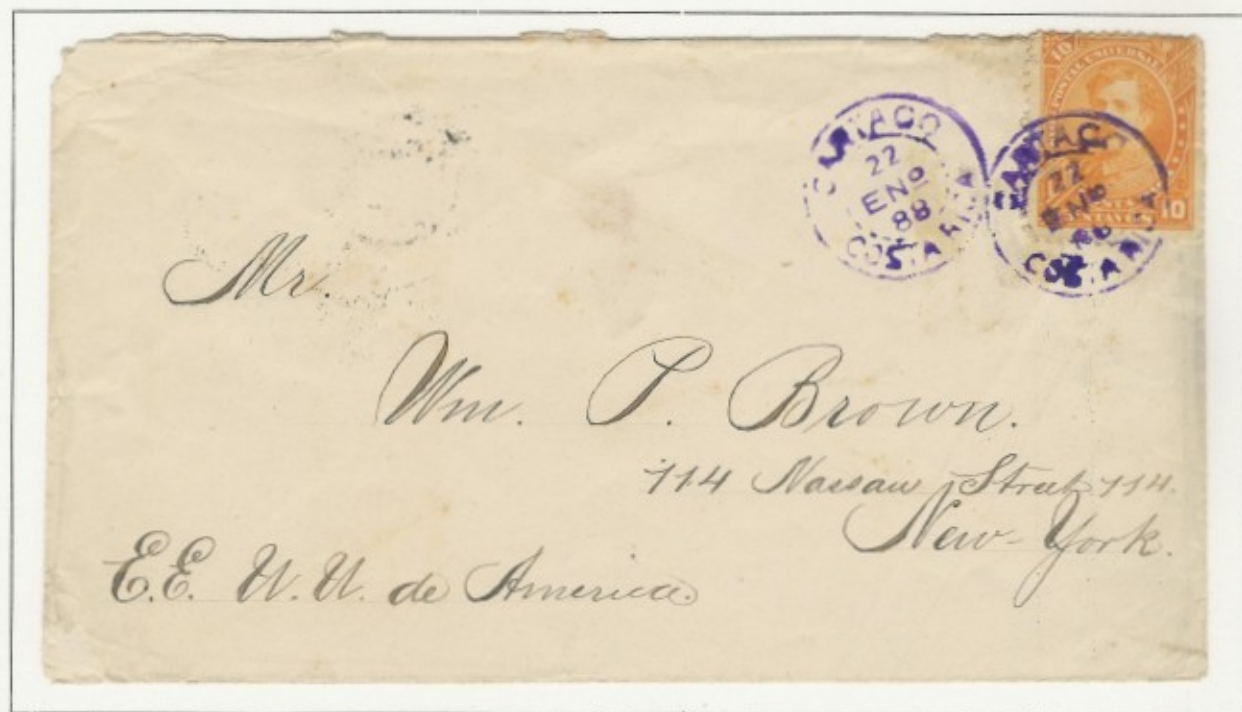 10 POSTAL UNIVERSAL
10
CARTAGO
22
ENO
88
COSTA RICA
CARTAGO
22
ENO
88
COSTA RICA
Mr.
Wm. P. Brown.
114 Nassau Street 114.
New-York.
E.E. U.U. de America.